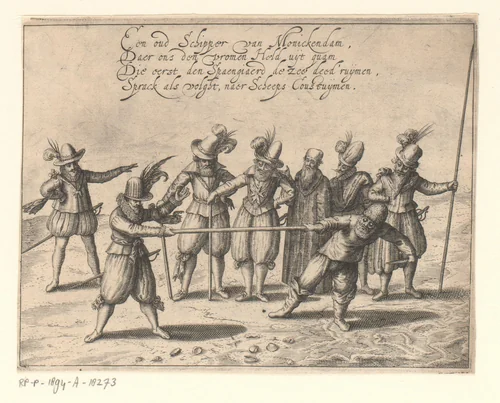 Een oud Schipper van Monickendam,
Daer ons den vromen Held uyt quam
Die eerst den Spaengiaerd de zee deed' ruymen,
Sprack als volght, naer Scheeps Coustuymen.
RP-P-1894-A-18273